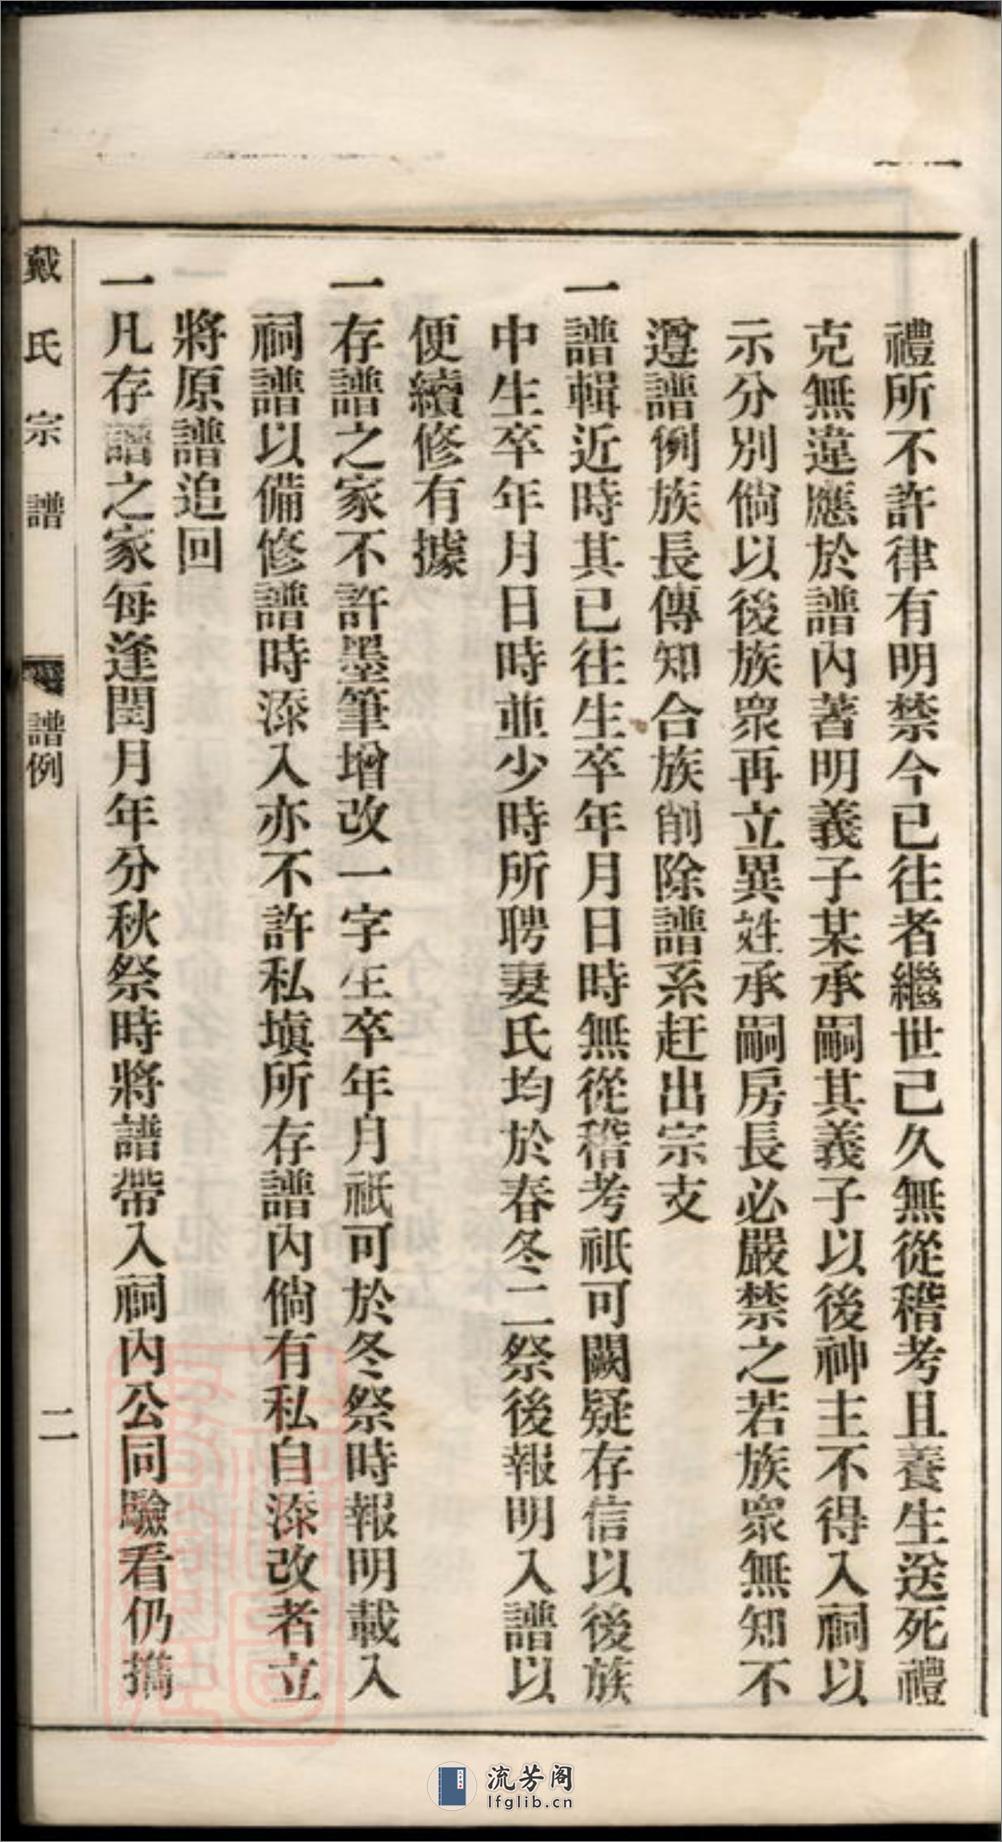 禮所不許律有明禁今已往者繼世已久無從稽考且養生送死禮
克無違應於譜內著明義子某承嗣其義子以後神主不得入祠以
示分別倘以後族眾再立異姓承嗣房長必嚴禁之若族眾無知不
遵譜例族長傳知合族削除譜系赶出宗支
一譜輯近時其已往生卒年月日時無從稽考祇可闕疑存信以後族
中生卒年月日時並少時所聘妻氏均於春冬二祭後報明入譜以
便續修有據
一存譜之家不許墨筆增改一字生卒年月祇可於冬祭時報明載入
祠譜以備修譜時添入亦不許私塡所存譜內倘有私自添改者立
將原譜追回
一凡存譜之家每逢閏月年分秋祭時將譜帶入祠內公同驗看仍擕
戴氏宗譜
譜例
二
流芳阁
lfglib.cn